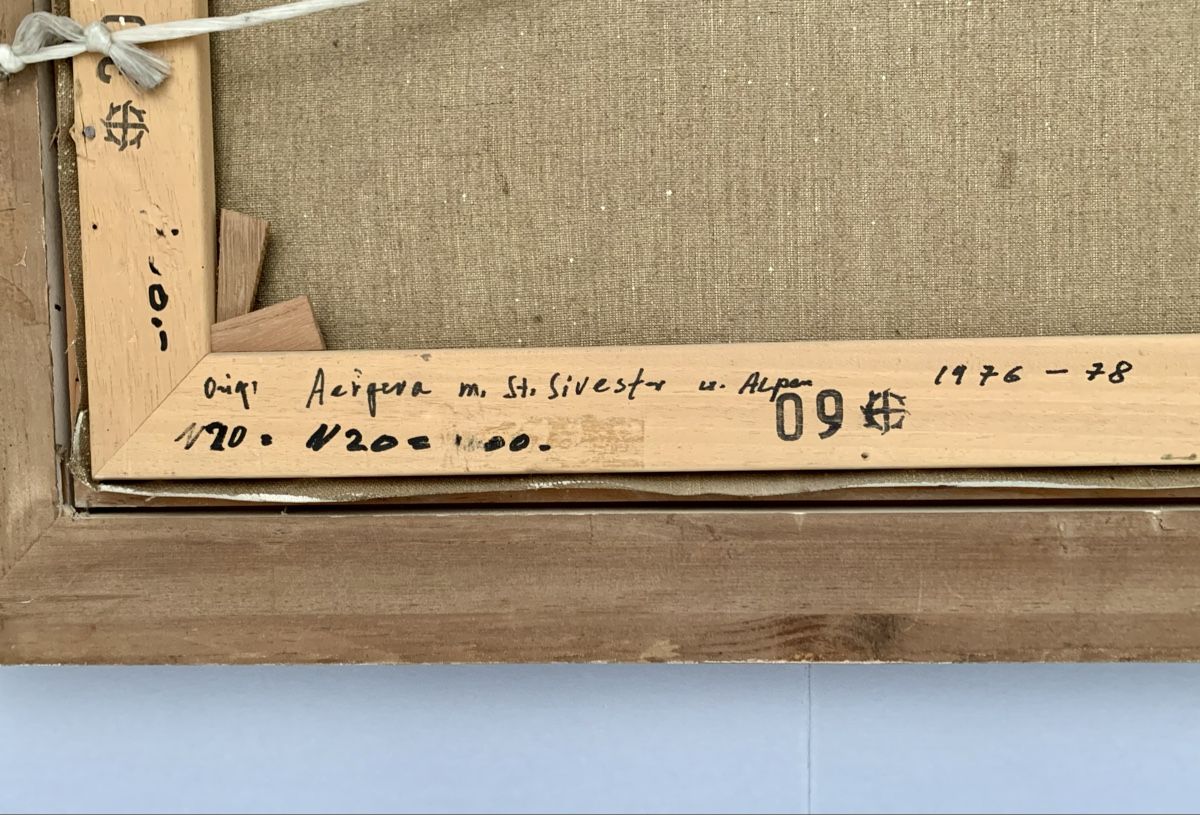 Origi Aergera m. St. Sivester u. Alpen 1976 - 78
N20 = N20 = 00.-
60